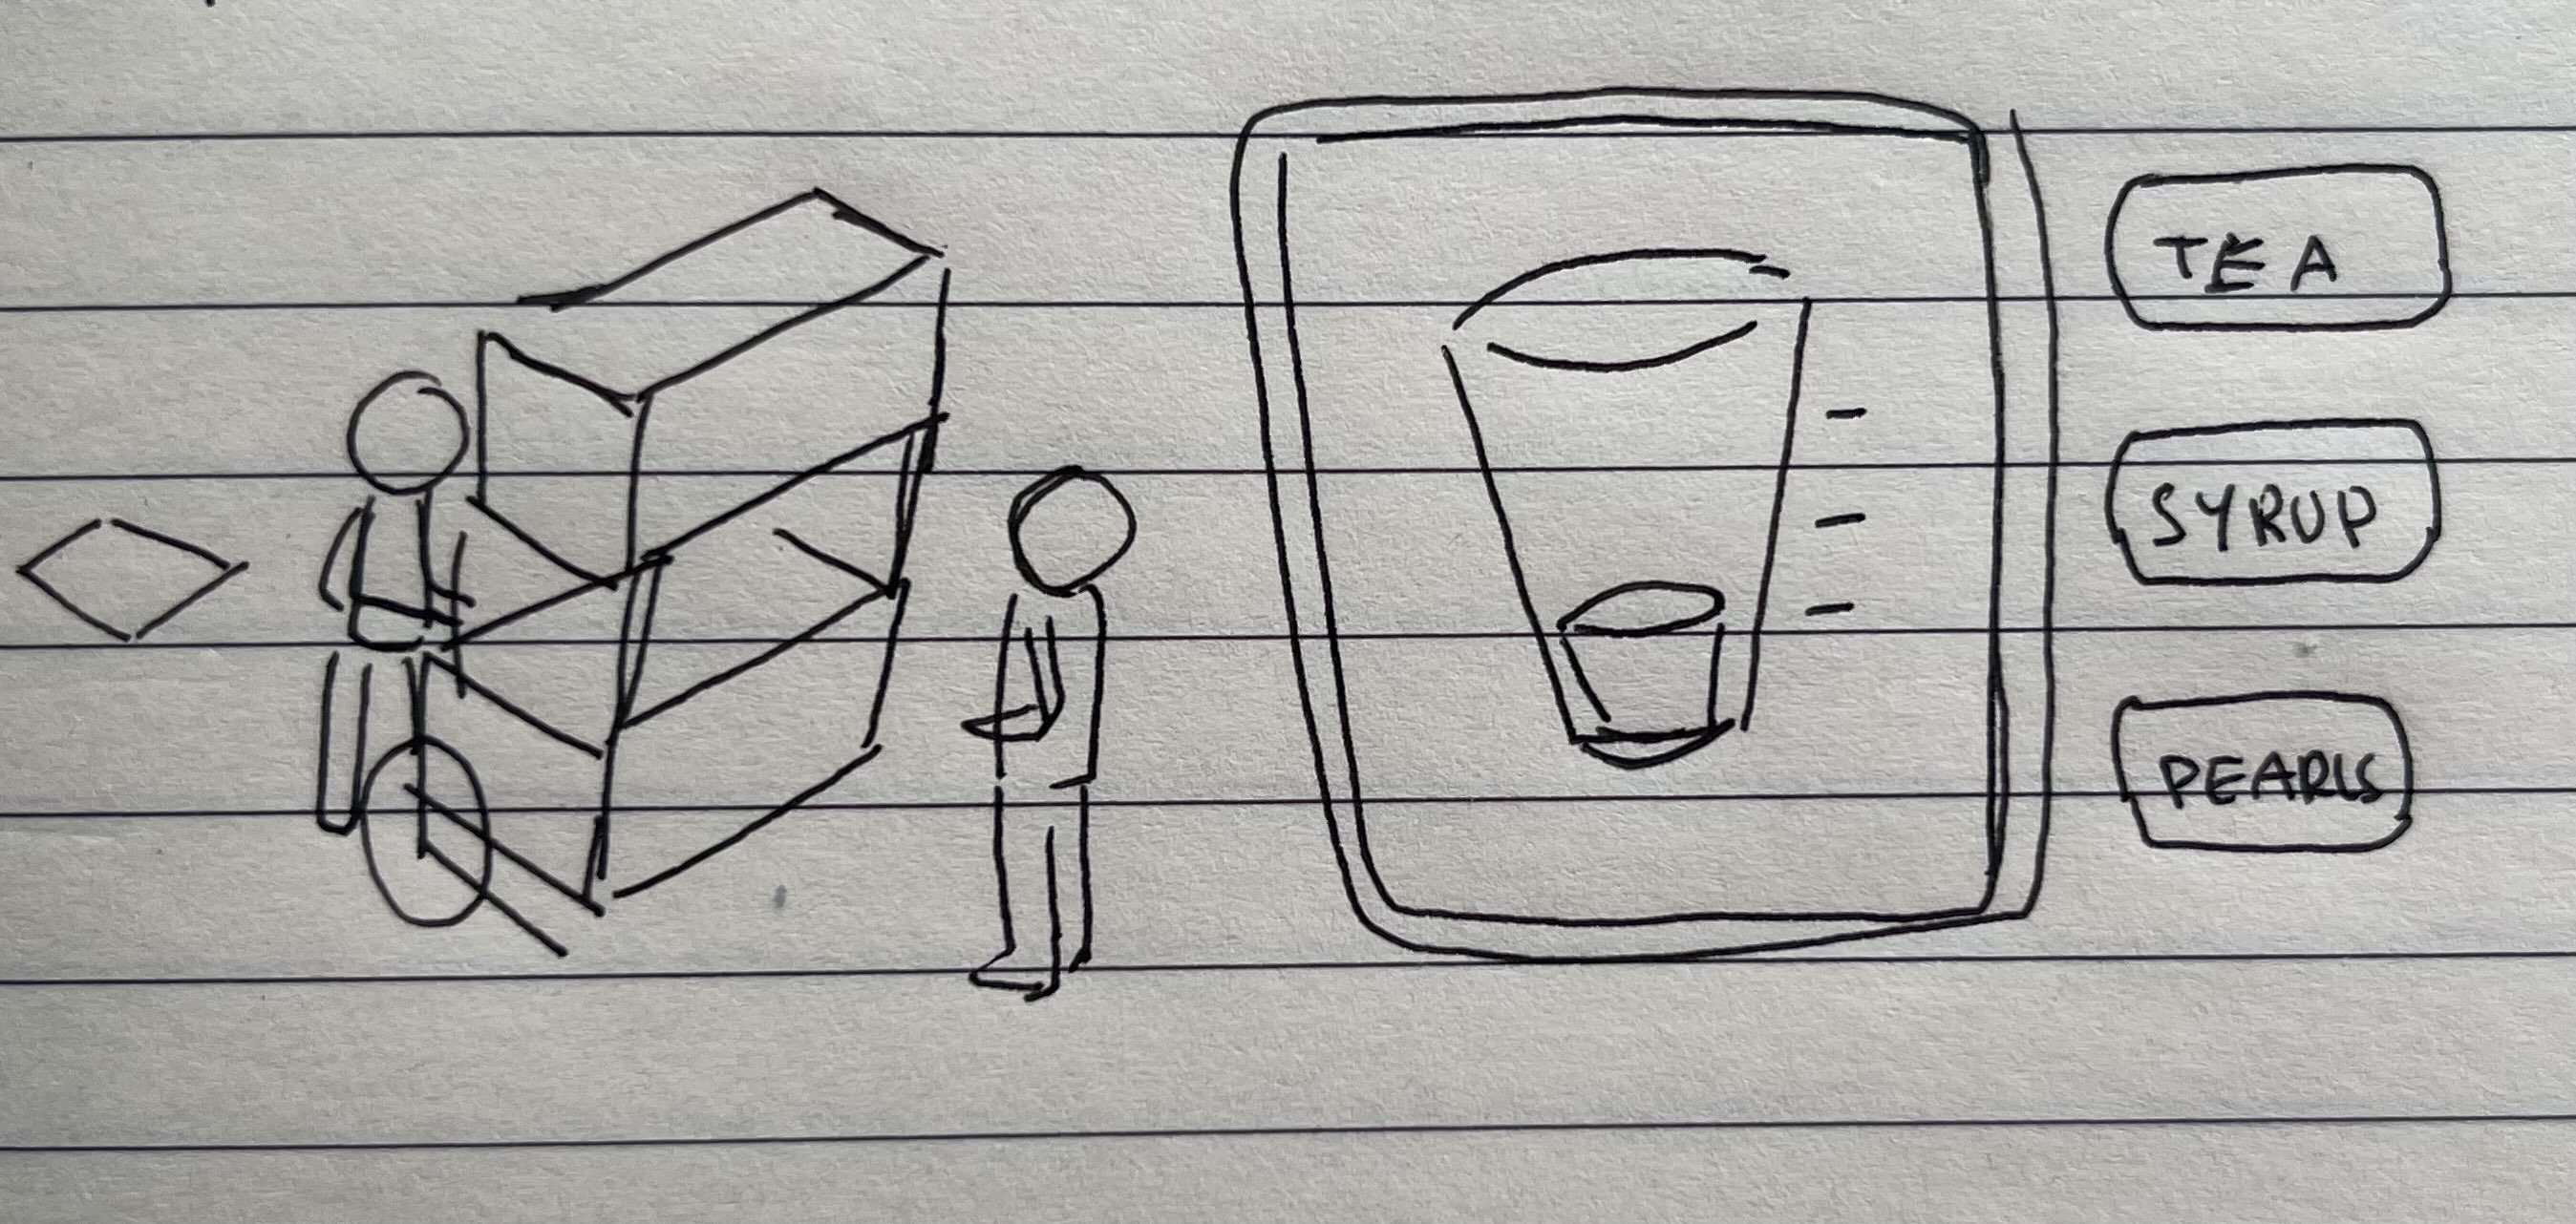 TEA
SYRUP
PEARLS